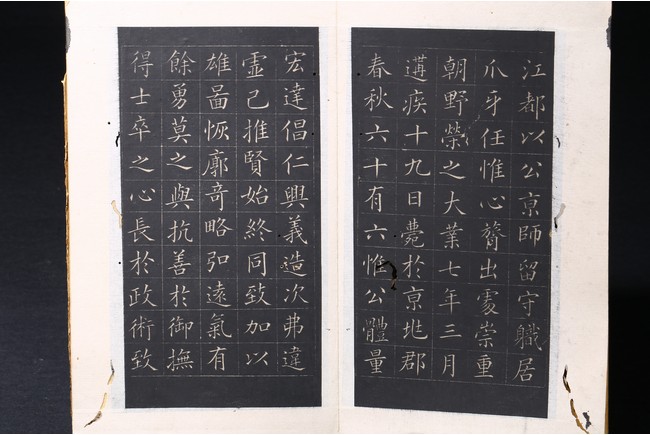 江都以公京師留守職居
爪牙任惟心膂出處崇重
朝野榮之大業七年三月
遘疾十九日薨於京地郡
春秋六十有六惟公體量
宏達倡仁興義造次弗違
虛己推賢始終同致加以
雄啚恢廓奇略弘遠氣有
餘勇莫之與抗善於御撫
得士卒之心長於政術致